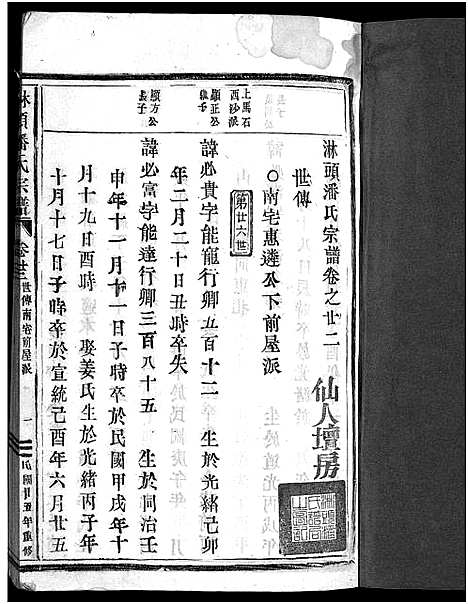 淋頭潘氏宗譜卷之廿二
仙人壇房
世傳
○南宅惠遴公下前屋派
第廿六世
上馬石
西沙派
顯正公
長子
諱必貴字能龍行卿五百十二 生於光緒己卯
年二月二十日丑時卒失
顯方公
長子
諱必富字能達行卿三百八十五 生於同治壬
申年十一月十一日子時卒於民國甲戌年十
月十九日酉時 娶姜氏生於光緒丙子年
十月十七日子時卒於宣統己酉年六月廿五
淋頭潘氏宗譜
卷廿二
世傳南宅前屋派
一
民國廿五年重修